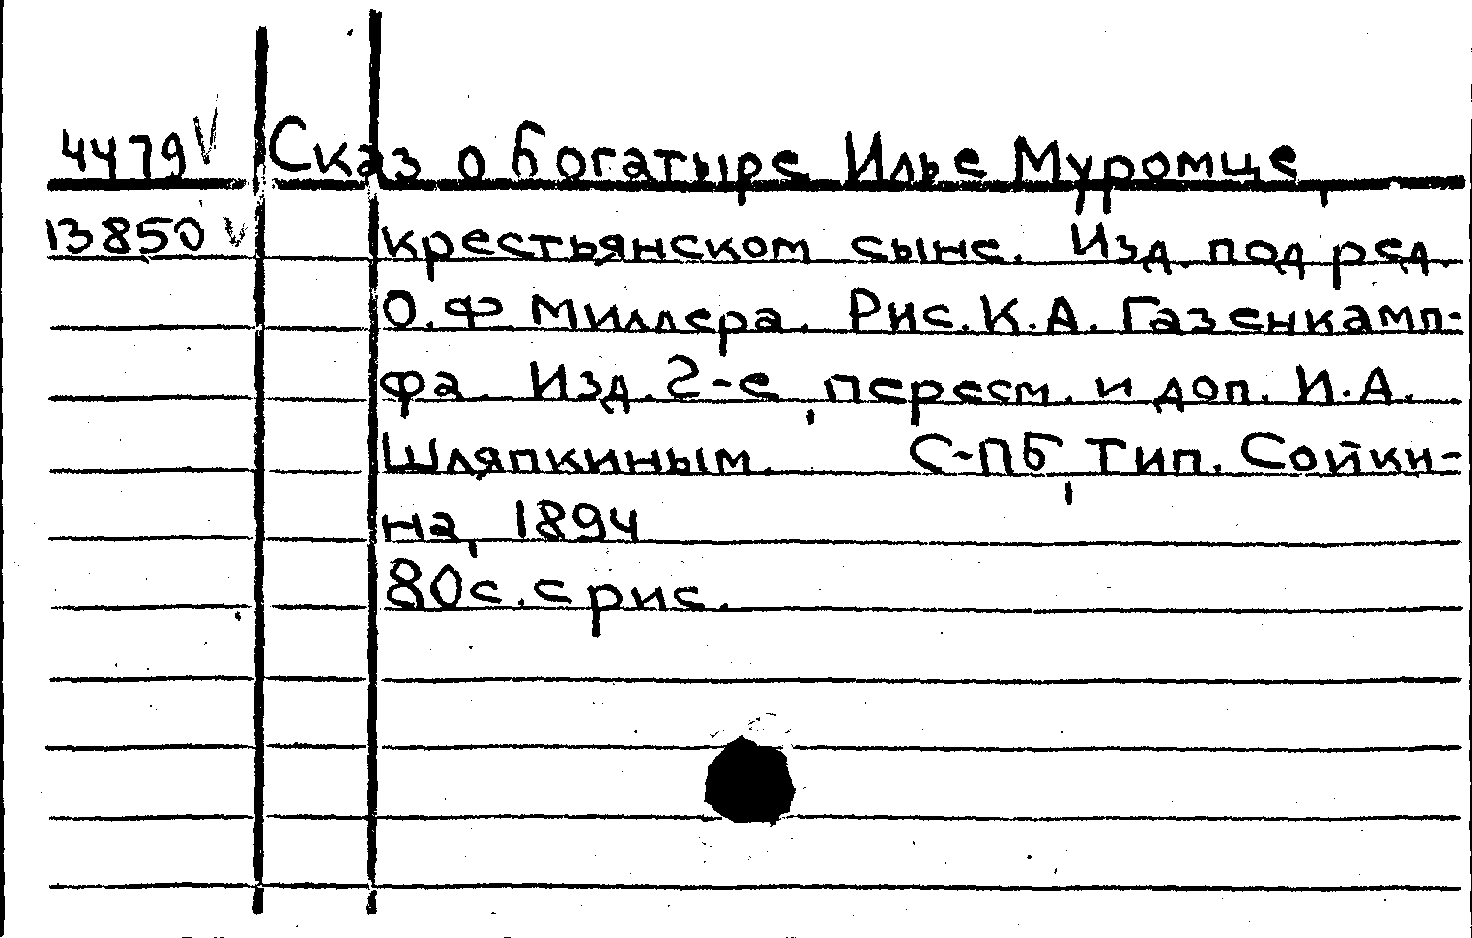 4479 V Сказ о богатыре Илье Муромце,
13850 v крестьянском сыне. Изд. под ред.
О.Ф Миллера. Рис. К.А. Газенкамп-
фа. Изд. 2-е, пересм. и доп. И.А.
Шляпкиным. С-ПБ, Тип. Сойки-
на, 1894
80с. с рис.